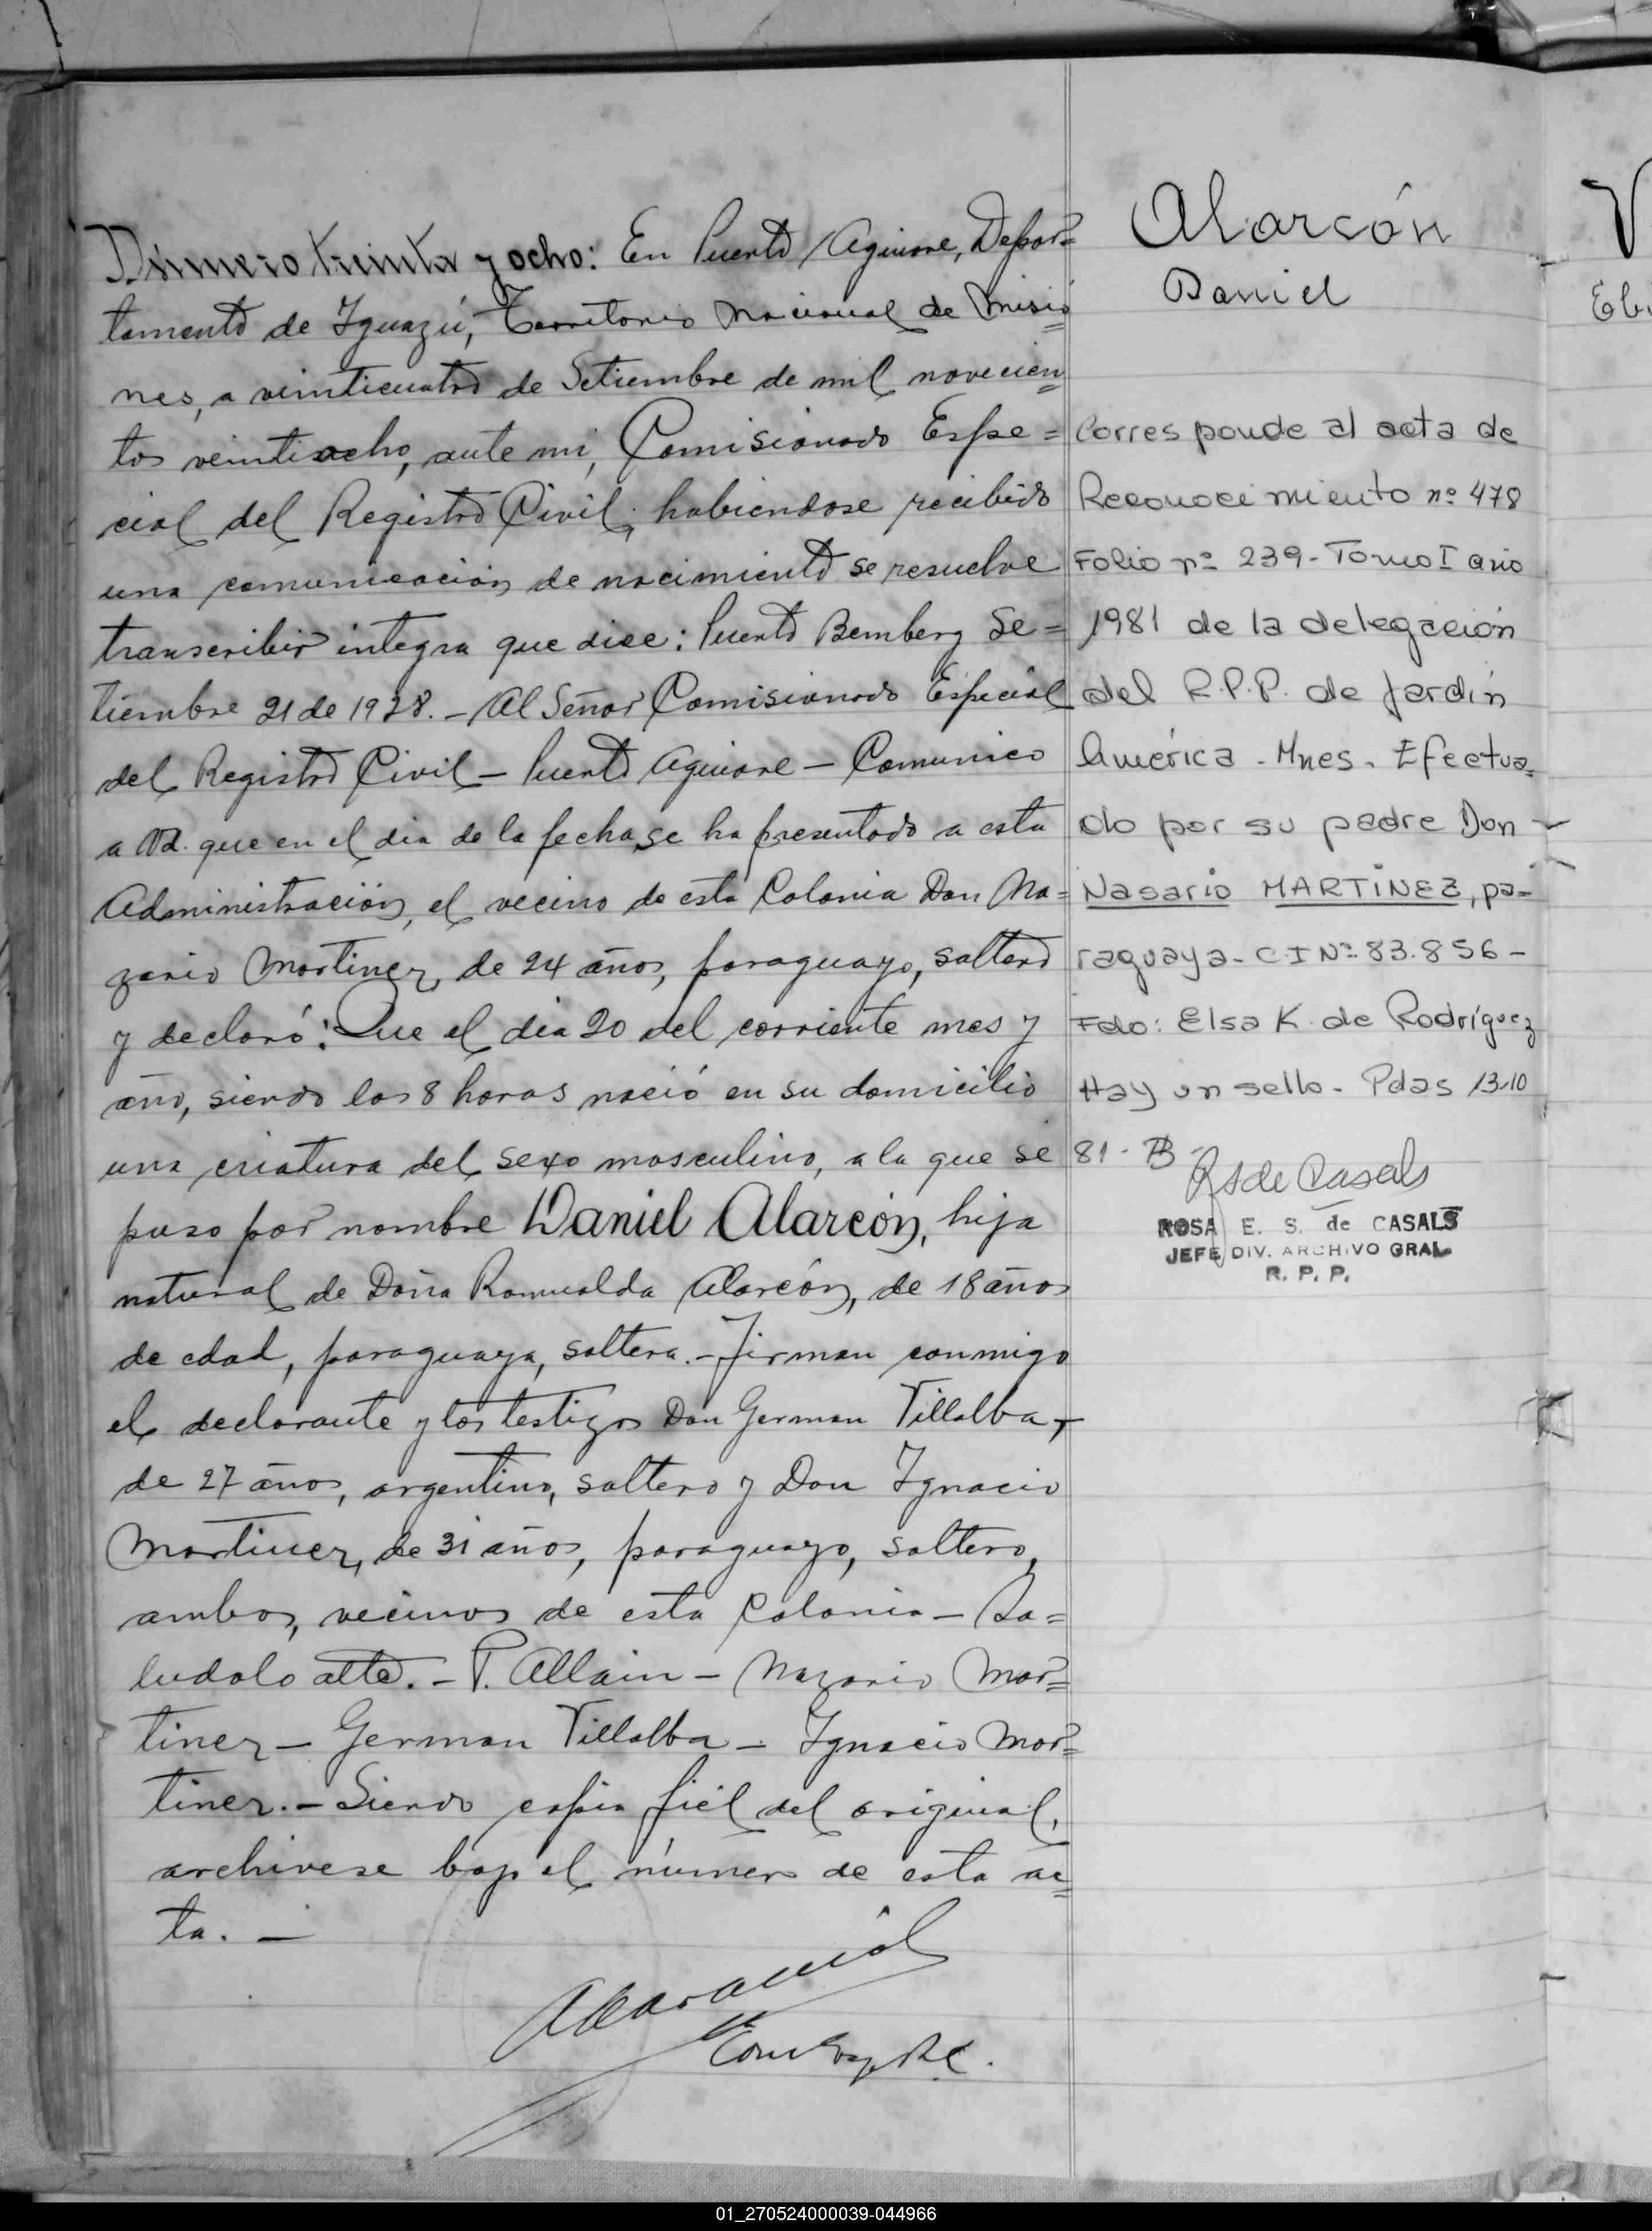 Número treinta y ocho: En Puerto Aguirre, Depar=
tamento de Iguazú, Territorio Nacional de Misio
nes, a veinticuatro de Setiembre de mil novecien
tos veintiocho, ante mi, Comisionado Espe=
cial del Registro Civil; habiendose recibido
una comunicación de nacimiento se resuelve
transcribir integra que dice: Puerto Bemberg Se=
tiembre 21 de 1928.- Al Señor Comisionado Especial
del Registro Civil - Puerto Aguirre - Comunico
a Vd. que en el dia de la fecha, se ha presentado a esta
Administración, el vecino de esta Colonia Don Na=
zario Martinez, de 24 años, paraguayo, soltero
y declaró: Que el dia 20 del corriente mes y
año, siendo las 8 horas nació en su domicilio
una criatura del sexo masculino, a la que se
puso por nombre Daniel Alarcón, hija
natural de Doña Romualda Alarcón, de 18 años
de edad, paraguaya, soltera.- Firman conmigo
el declarante y los testigos Don German Villalba,
de 27 años, argentino, soltero y Don Ignacio
Martinez, de 31 años, paraguayo, soltero,
ambos, vecinos de esta Colonia - Sa=
ludalo atte. - P. Allain - Nazario Mar=
tinez - German Villalba - Ignacio Mar=
tinez.- Siendo copia fiel del original,
archivese bajo el número de esta ac
ta. -
Alarcón
Daniel
Corresponde al acta de
Reconocimiento nº 478
Folio nº 239 - Tomo I año
1981 de la delegación
del R.P.P. de Jardín
América - Mnes. Efectua=
do por su padre Don -
Nasario MARTINEZ, pa-
raguaya - C I Nº 83.856 -
Fdo: Elsa K. de Rodríguez
Hay un sello - Pdas 13-10
81 -
RS de Casals
ROSA E. S. de CASALS
JEFE DIV. ARCHIVO GRAL
R. P. P.
01_270524000039-044966